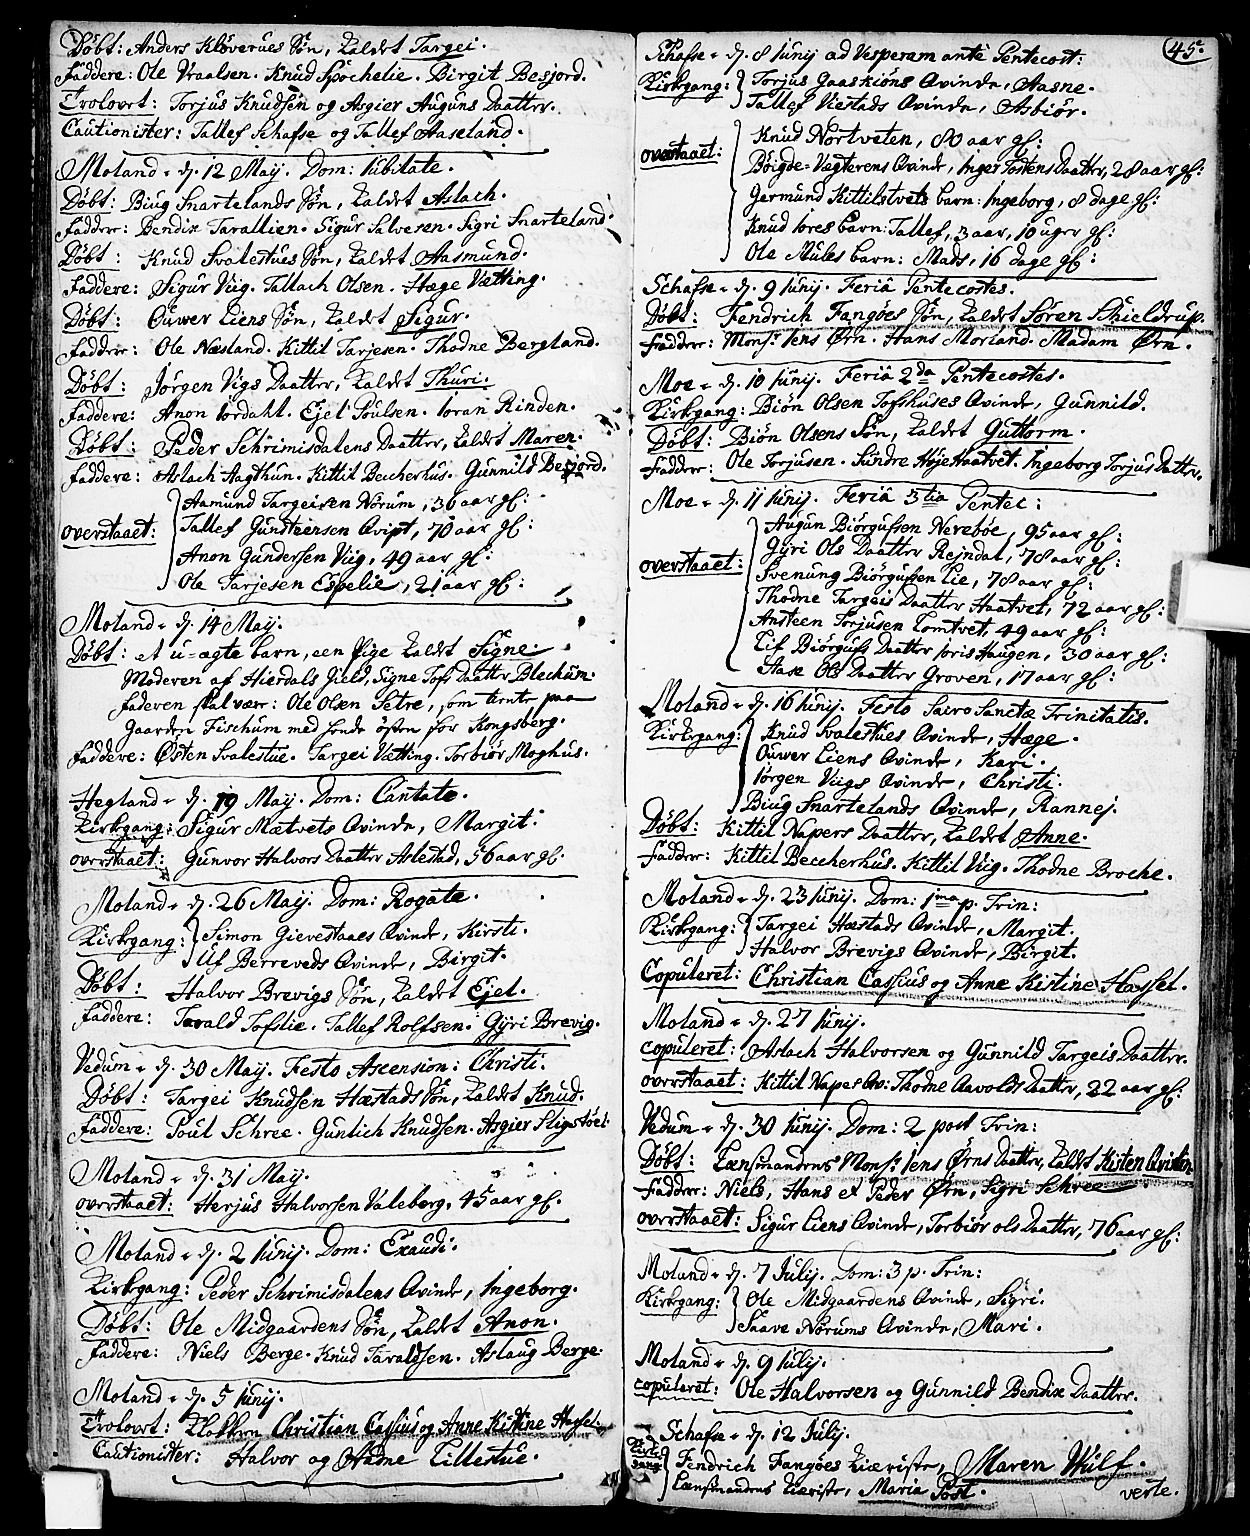 Døbt: Anders Kløverues Søn, kaldet Targei.
Faddere: Ole Vraalsen. Knud Spochelie. Birgit Besjord.
Trolovet: Torjus Knudsen og Asgier Auguns Daatter.
Cautionister: Tallef Schafse og Tallef Aaseland.
Moland d. 12 Maij. Dom: Jubilate.
Døbt: Biug Snartelands Søn, kaldet Aslach.
Faddere: Bendix Tarallien. Sigur Salvesen. Sigri Snarteland.
Døbt: Knud Svalestues Søn, kaldet Aasmund.
Faddere: Sigur Viig. Tallach Olsen. Hæge Vætting.
Døbt: Ouwer Liens Søn, kaldet Sigur.
Faddere: Ole Næsland. Kittil Tarjesen. Thodne Bergland.
Døbt: Jørgen Vigs Daatter, kaldet Thuri:
Faddere: Anon Jordahl. Ejel Poulsen. Joran Rinden.
Døbt: Peder Schrimisdalens Daatter, kaldet Maren.
Faddere: Aslach Hagthun. Kittil Becherhus. Gunnild Besjord.
overstaaet: Aamund Targeisen Norum, 36 aar gl:
Tallef Gunsteensen Qvipt, 70 aar gl:
Anon Gundersen Viig, 49 aar gl:
Ole Tarjesen Espelie, 21 aar gl:
Moland d. 14 Maij.
Døbt: et u-ægte barn, een Pige kaldet Signe.
Moderen af Hierdals Gield, Signe Tofs Daatter Blechum.
faderen skal være: Ole Olsen Setre, som tiente paa
Gaarden Fischum med sonde østen for Kongsberg.
Faddere: Østen Svalestue. Targei Vætting. Torbiør Moghus.
Hegland d. 19 Maij. Dom: Cantate.
Kirkgang: Sigur Mætvets Qvinde, Margit.
overstaaet: Gunvor Halvors Daatter Aslestad, 56 aar gl.
Moland d. 26 Maij. Dom: Rogate.
Kirkgang: Simon Gievestaaes Qvinde, Kirsti.
Ulf Berreveds Qvinde, Birgit.
Døbt: Halvor Brevigs Søn, kaldet Ejel.
Faddere: Tarald Tofslie. Tallef Rolfsen. Gyri Brevig.
Vedum d. 30 Maij. Festo Ascension: Christi.
Døbt: Targei Knudsen Hæstads Søn, kaldet Knud.
Faddere: Poul Schree. Gunlich Knudsen. Asgier Sligstøel.
Moland d. 31 Maij.
overstaaet: Herjus Halvorsen Valeberg, 45 aar gl.
Moland d. 2 Junij. Dom: Exaudi.
Kirkgang: Peder Schrimisdalens Qvinde, Ingeborg.
Døbt: Ole Midgaardens Søn, kaldet Anon.
Faddere: Niels Berge. Knud Taraldsen. Aslaug Berge.
Moland d. 5 Junij.
Trolovet: Klokken Christian Cassius og Anne Kistine Hassel.
Cautionister: Halvor og Aadne Lillestue.
45.
Schafse d. 8 Junij ad Vesperem ante Pentecost:
Kirkgang: Torjus Gaaskiøns Qvinde, Aasne.
Tallef Viestads Qvinde, Asbiør.
overstaaet: Knud Nortveten, 80 aar gl:
Böigde-Vagterens Qvinde, Inger Tostens Daatter, 28 aar gl:
Germund Kittilstvets barn: Ingeborg, 8 dage gl:
Knud Jores barn: Tallef, 3 aar, 10 uger gl:
Ole Mules barn: Mads, 16 dage gl:
Schafse d. 9 Junij. Feria Pentecostes.
Døbt: Fendrich Fangöes Søn, kaldet Søren Schieldrup.
Faddere: Monsr. Jens Ørn. Hans Morland. Madam Ørn.
Moe d. 10 Junij. Feria 2da Pentecostes.
Kirkgang: Biøn Olsen Tofshuses Qvinde, Gunnild.
Døbt: Biøn Olsens Søn, kaldet Guttorm.
Faddere: Ole Torjusen. Sundre Høje Haatvet. Ingeborg Torjus Datter.
Moe d. 11 Junij. Feria 3tia Pentec:
overstaaet: Augun Biørgufsen Nerebøe, 95 aar gl:
Gyri Ols Daatter Rejndal, 78 aar gl:
Svenung Biørgufsen Lie, 78 aar gl:
Thodne Targeis Daatter Haatvet, 72 aar gl:
Ansteen Torjusen Lomtvet, 49 aar gl:
Lif Biørgufs Daatter Joris Haugen, 30 aar gl:
Aase Ols Daatter Groven, 17 aar gl:
Moland d. 16 Junij. Festo Sacro Sanctæ Trinitatis.
Kirkgang: Knud Svalestues Qvinde, Hæge.
Ouwer Liens Qvinde, Kari.
Jørgen Viigs Qvinde, Christi.
Biug Snartelands Qvinde, Rannej.
Døbt: Kittil Napers Daatter, kaldet Anne.
Fadder: Kittil Beccherhus. Kittil Viig. Thodne Broche.
Moland d. 23 Junij. Dom: 1ma p. Trin:
Kirkgang: Targei Hæstads Qvinde, Margit.
Halvor Brevigs Qvinde, Birgit.
Copuleret: Christian Cassius og Anne Kistine Hassel.
Moland d. 27 Junij.
copuleret: Aslach Halvorsen og Gunnild Targeis Daatter.
overstaaet: Kittil Napes Qv: Thodne Aavolds Daatter, 22 aar gl:
Vedum d. 30 Junij. Dom: 2 post Trin:
Døbt: Lænsmandens Monsr. Jens Ørns Daatter, kaldet Kisten Qvisten
Fadder: Niels, Hans et Peder Ørn, Sigri Schree
overstaaet: Sigur Liens Qvinde, Torbiør ols Daatter, 76 aar gl:
Moland d. 7 Julij. Dom: 3 p. Trin:
Kirkgang: Ole Midgaardens Qvinde, Sigri.
Saave Norums Qvinde, Mari.
Moland d. 9 Julij.
copuleret: Ole Halvorsen og Gunnild Bendix Daatter.
Schafse d. 12 Julij.
Kirkgang: Fendrich Fangöes Kiæriste, Maren Wulf.
Lænsmandens Kiæriste, Maria Post.
verte.